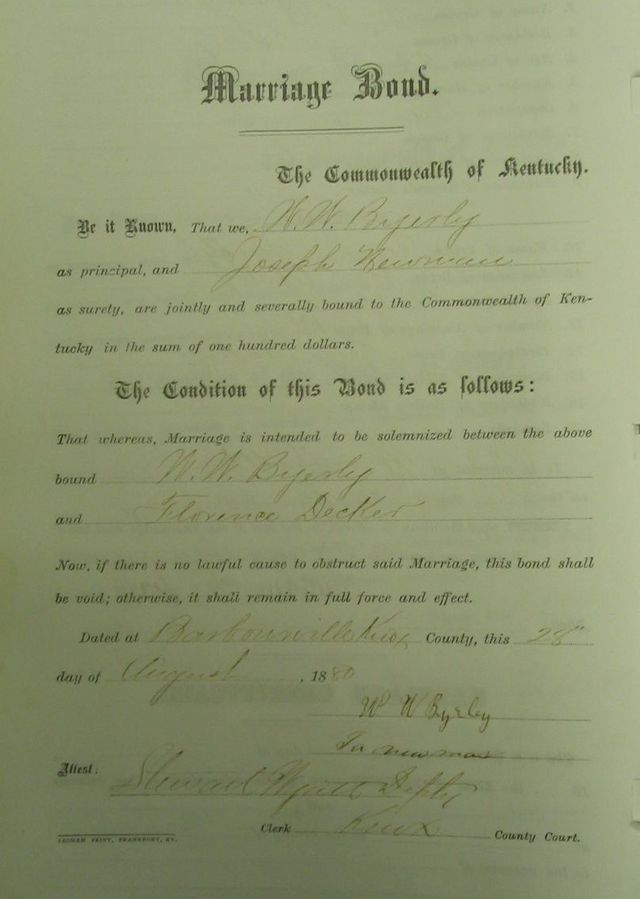 Marriage Bond.
The Commonwealth of Kentucky.
Be it Known, That we, W. W. Byerley
as principal, and Joseph Newman
as surety, are jointly and severally bound to the Commonwealth of Ken-
tucky in the sum of one hundred dollars.
The Condition of this Bond is as follows:
That whereas, Marriage is intended to be solemnized between the above
bound W. W. Byerley
and Florence Decker
Now, if there is no lawful cause to obstruct said Marriage, this bond shall
be void; otherwise, it shall remain in full force and effect.
Dated at Barbourville Knox County, this 28"
day of August, 1880
W W Byerley
newman
Attest:
Stewart Wyatt Dpty
Clerk Knox County Court.
YEOMAN PRINT, FRANKFORT, KY.